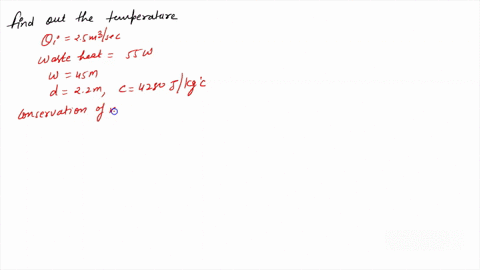 find out the temperature
Qi = 2.5 m³/sec
waste heat = 55 W
W = 45 m
d = 2.2 m, C = 4280 J/kg°C
conservation of